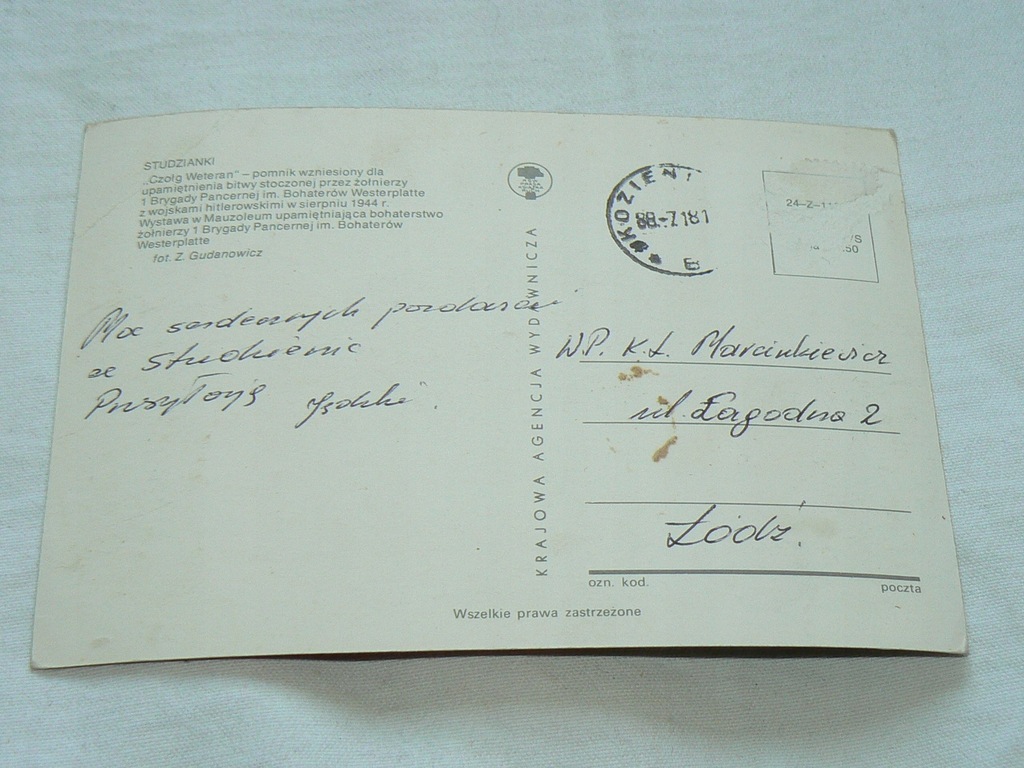 STUDZIANKI
„Czołg Weteran” – pomnik wzniesiony dla
upamiętnienia bitwy stoczonej przez żołnierzy
1 Brygady Pancernej im. Bohaterów Westerplatte
z wojskami hitlerowskimi w sierpniu 1944 r.
Wystawa w Mauzoleum upamiętniająca bohaterstwo
żołnierzy 1 Brygady Pancernej im. Bohaterów
Westerplatte
fot. Z. Gudanowicz
serdecznych pozdrowień
ze
Przesyłają
KRAJOWA AGENCJA WYDAWNICZA
KOZIENI
B
24–Z–11
/S
.50
W.P. K.Ł. Marcinkiewicz
ul. Łagodna 2
Łódź.
ozn. kod.
poczta
Wszelkie prawa zastrzeżone